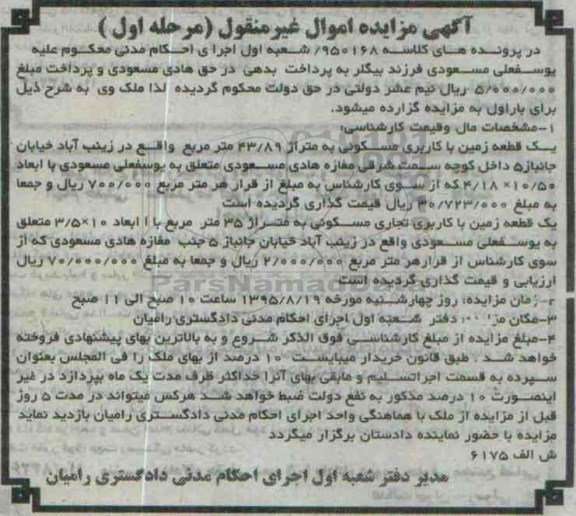 آگهی مزایده اموال غیرمنقول (مرحله اول)
در پرونده های کلاسه ۹۵۰۱۶۸/ شعبه اول اجرای احکام مدنی محکوم علیه
یوسفعلی مسعودی فرزند بیگلر به پرداخت بدهی در حق هادی مسعودی و پرداخت مبلغ
۵/۰۰۰/۰۰۰ ریال نیم عشر دولتی در حق دولت محکوم گردیده لذا ملک وی به شرح ذیل
برای باراول به مزایده گزارده میشود.
۱-مشخصات مال وقیمت کارشناسی:
یک قطعه زمین با کاربری مسکونی به متراژ ۴۳/۸۹ متر مربع واقع در زینب آباد خیابان
جانباز۵ داخل کوچه سمت شرقی مغازه هادی مسعودی متعلق به یوسفعلی مسعودی با ابعاد
۱۰/۵۰×۴/۱۸ که از سوی کارشناس به مبلغ از قرار هر متر مربع ۷۰۰/۰۰۰ ریال و جمعا
به مبلغ ۳۰/۷۲۳/۰۰۰ ریال قیمت گذاری گردیده است
یک قطعه زمین با کاربری تجاری مسکونی به متراژ ۳۵ متر مربع با ا ابعاد ۱۰×۳/۵ متعلق
به یوسفعلی مسعودی واقع در زینب آباد خیابان جانباز ۵ جنب مغازه هادی مسعودی که از
سوی کارشناس از قرارهر متر مربع ۲/۰۰۰/۰۰۰ ریال و جمعا به مبلغ ۷۰/۰۰۰/۰۰۰ ریال
ارزیابی و قیمت گذاری گردیده است
۲-زمان مزایده: روز چهارشنبه مورخه ۱۳۹۵/۸/۱۹ ساعت ۱۰ صبح الی ۱۱ صبح
۳-مکان دفتر شعبه اول اجرای احکام مدنی دادگستری رامیان
۴-مبلغ مزایده از مبلغ کارشناسی فوق الذکر شروع و به بالاترین بهای پیشنهادی فروخته
خواهد شد . طبق قانون خریدار میبایست ۱۰ درصد از بهای ملک را فی المجلس بعنوان
سپرده به قسمت اجراتسلیم و مابقی بهای آنرا حداکثر ظرف مدت یک ماه بپردازد در غیر
اینصورت ۱۰ درصد مذکور به نفع دولت ضبط خواهد شد هرکس میتواند در مدت ۵ روز
قبل از مزایده از ملک با هماهنگی واحد اجرای احکام مدنی دادگستری رامیان بازدید نماید
مزایده با حضور نماینده دادستان برگزار میگردد
ش الف ۶۱۷۵
مدیر دفتر شعبه اول اجرای احکام مدنی دادگستری رامیان